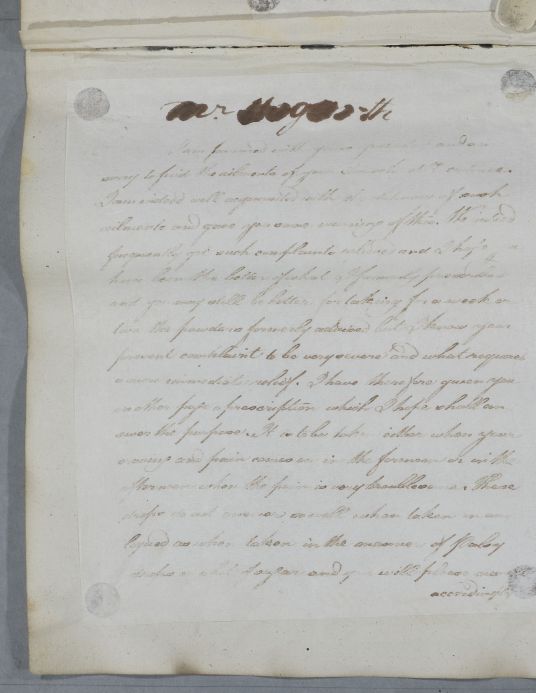 Mr Hogarth
I am favored with yours and am
sorry to find the ailments of your Stomach still continue.
I am indeed well acquainted with the of such
ailments and gave you some warning of this. We indeed
frequently get such complaints relieved and I hope you
have been the better of what I formerly prescribed
and you may still be better for taking for a week or
two the powders formerly advised but I know your
present complaint to be very severe and what requires
a more immediate relief. I have therefore given you
on other page a prescription which I hope shall an
swer the purpose. It is to be taken either when your
and pain comes on in the forenoon or in the
afternoon when the pain is very troublesome. These
drops do not answer so well when taken in any
liquid as when taken in the manner of
drops a bit Sugar and you will please
accordingly